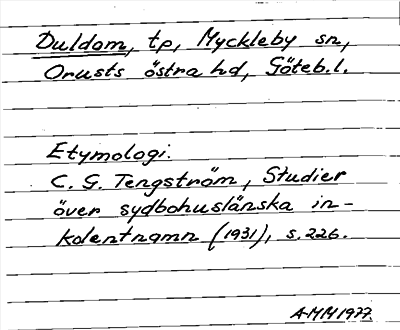 Duldom, tp, Myckleby sn,
Orusts östra hd, Göteb.l.
Etymologi.
C. G. Tengström, Studier
över sydbohuslänska in-
kolentnamn (1931), s. 226.
A-MM 1977